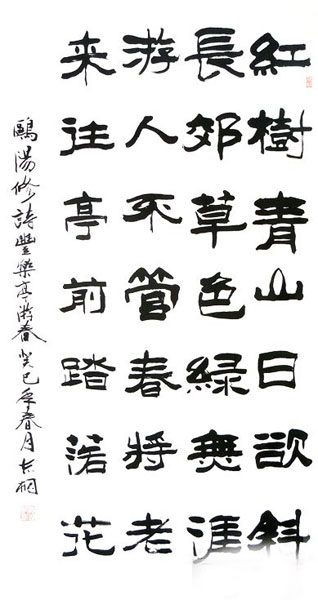 紅樹青山日欲斜
長郊草色綠無涯
游人不管春將老
来往亭前踏落花
鷗陽修詩豐樂亭游春癸巳年春月